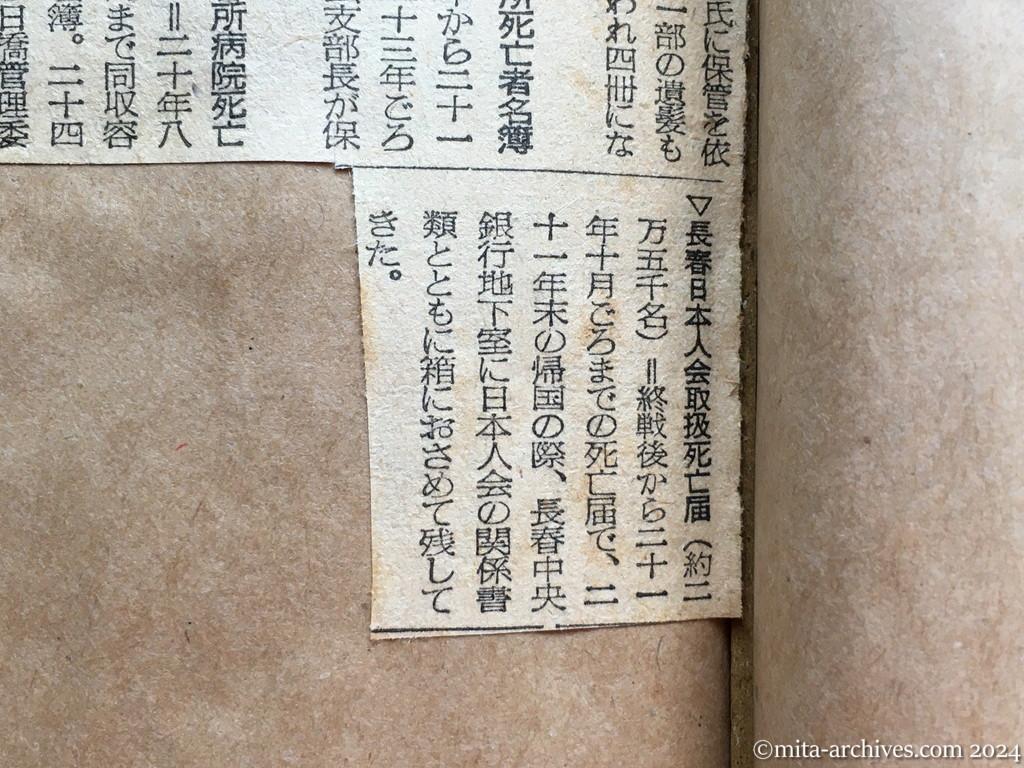 氏に保管を依
一部の遺髪も
われ四冊にな
所死亡者名簿
から二十一
十三年ごろ
支部長が保
所病院死亡
＝二十年八
まで同収容
簿。二十四
日僑管理委
▽長春日本人会取扱死亡届（約二
万五千名）＝終戦後から二十一
年十月ごろまでの死亡届で、二
十一年末の帰国の際、長春中央
銀行地下室に日本人会の関係書
類とともに箱におさめて残して
きた。
©mita-archives.com 2024